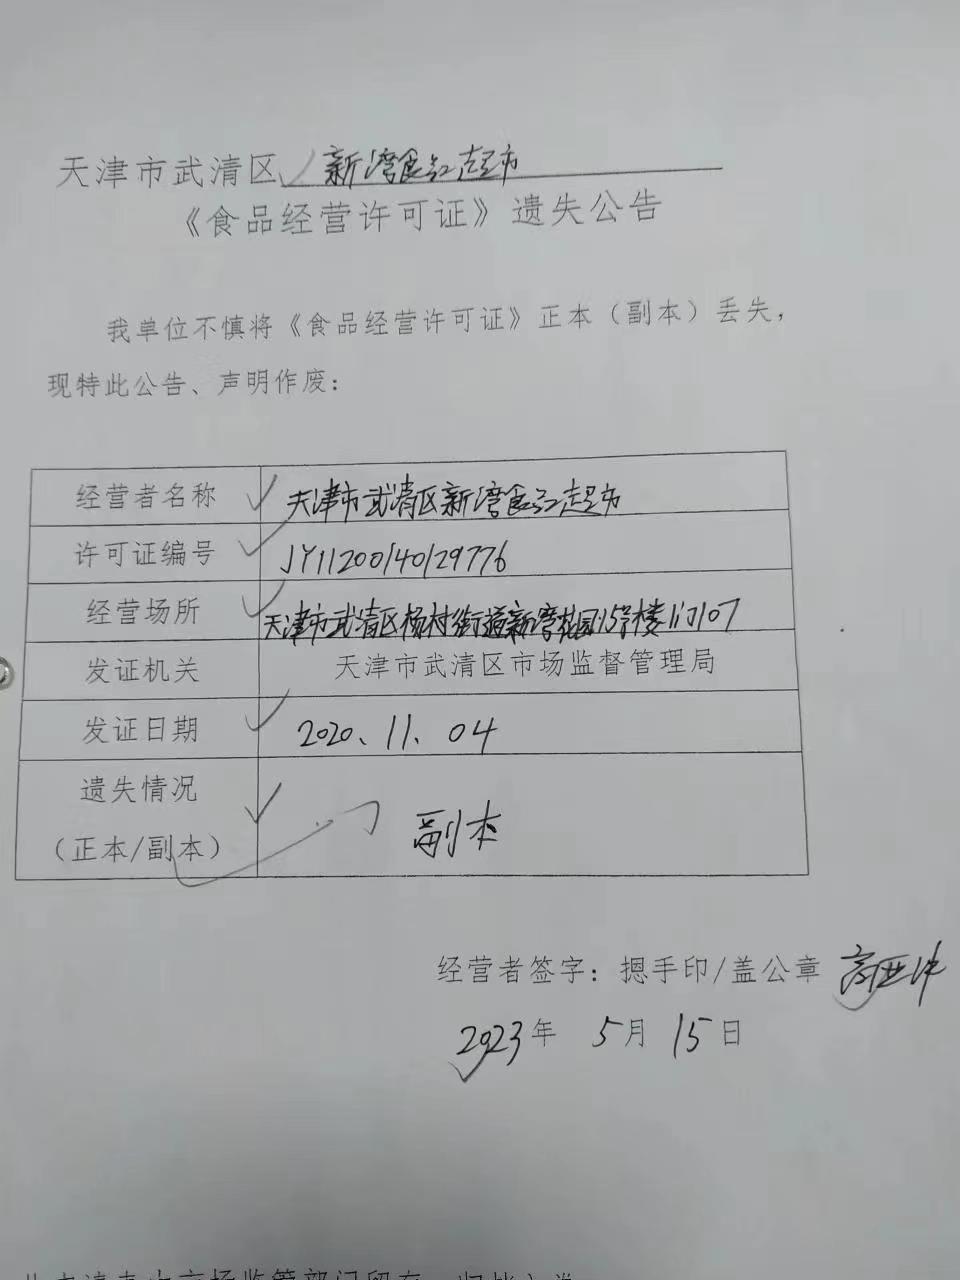 天津市武清区新湾食品超市
《食品经营许可证》遗失公告
我单位不慎将《食品经营许可证》正本（副本）丢失，
现特此公告、声明作废：
经营者名称 天津市武清区新湾食品超市
许可证编号 JY11200140129776
经营场所 天津市武清区杨村街道新湾花园15号楼1门107
发证机关 天津市武清区市场监督管理局
发证日期 2020、11、04
遗失情况
（正本/副本） 副本
经营者签字：摁手印/盖公章
2023年 5月 15日